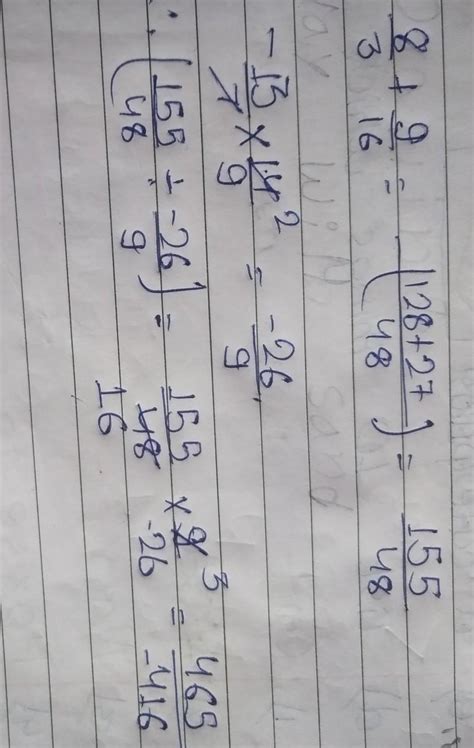 8/3 + 9/16 = (128+27/48) = 155/48
-13/7 × 14/9 2 = -26/9
∴ (155/48 ÷ -26/9) = 155/48 16 × 9/-26 3 = 465/-416